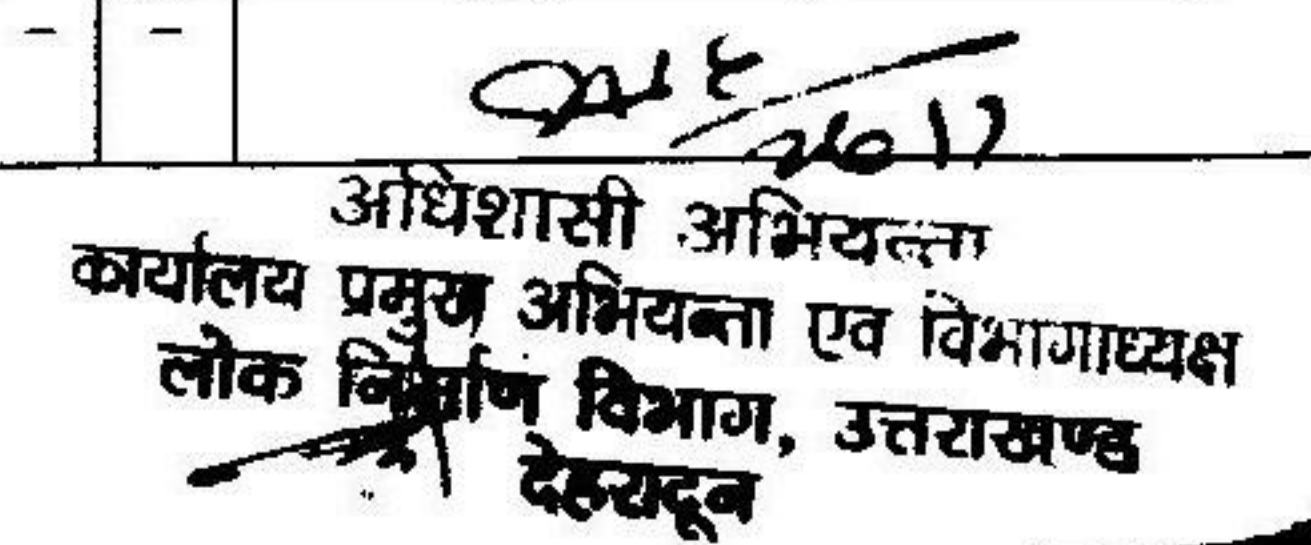 - -
अधिशासी अभियन्ता
कार्यालय प्रमुख अभियन्ता एव विभागाध्यक्ष
लोक निर्माण विभाग, उत्तराखण्ड
देहरादून